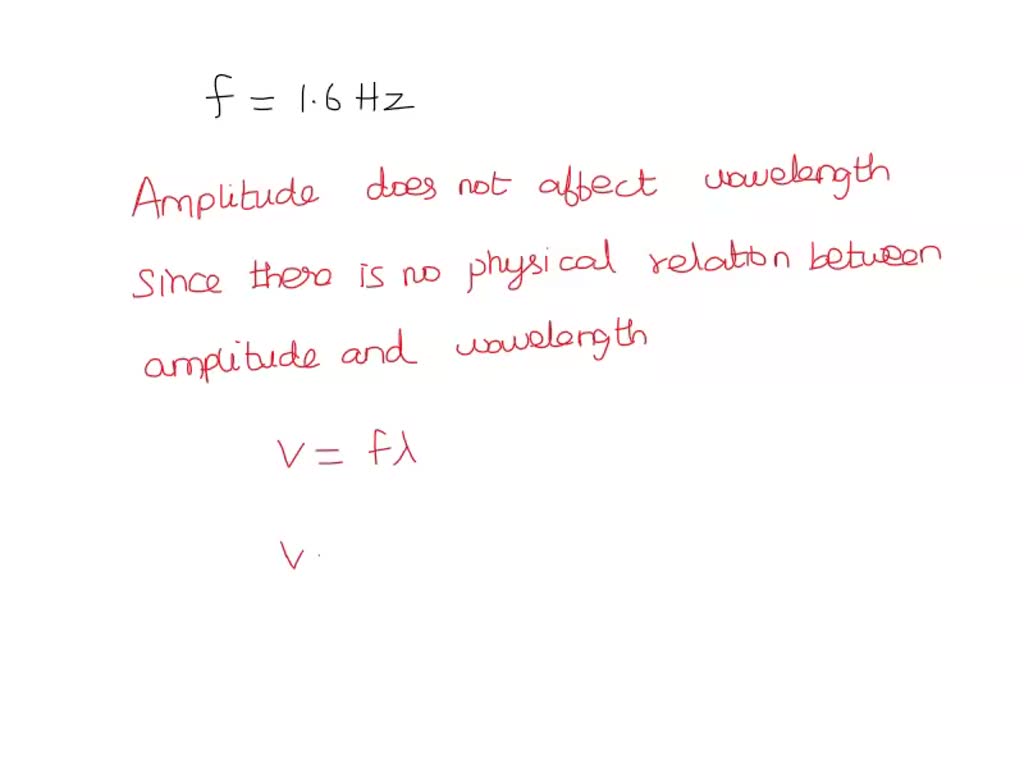 f = 1.6 Hz
Amplitude does not affect wavelength
Since there is no physical relation between
amplitude and wavelength
V = fλ
V